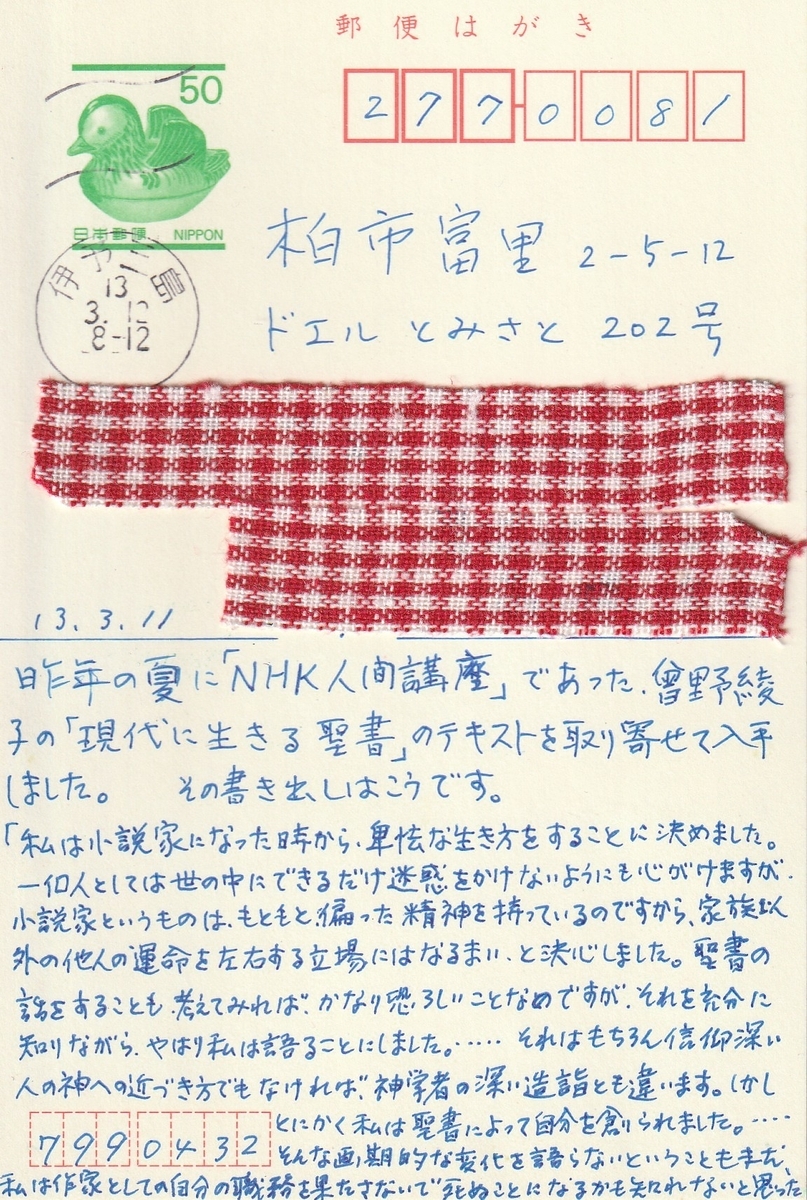 郵便はがき
50
日本郵便 NIPPON
277-0081
伊予三島
13
3.12
8-12
柏市富里 2-5-12
ドエル とみさと 202号
13.3.11
昨年の夏に「NHK人間講座」であった、曾野綾
子の「現代に生きる聖書」のテキストを取り寄せて入手
しました。 その書き出しはこうです。
「私は小説家になった時から、卑怯な生き方をすることに決めました。
一個人としては世の中にできるだけ迷惑をかけないようにも心がけますが、
小説家というものは、もともと、偏った精神を持っているのですから、家族以
外の他人の運命を左右する立場にはなるまい、と決心しました。聖書の
話をすることも、考えてみれば、かなり恐ろしいことなのですが、それを充分に
知りながら、やはり私は語ることにしました。…… それはもちろん信仰深い
人の神への近づき方でもなければ、神学者の深い造詣とも違います。しかし
とにかく私は聖書によって自分を創られました。……
7990432
そんな画期的な変化を語らないということもまた、
私は作家としての自分の職務を果たさないで死ぬことになるかも知れないと思った